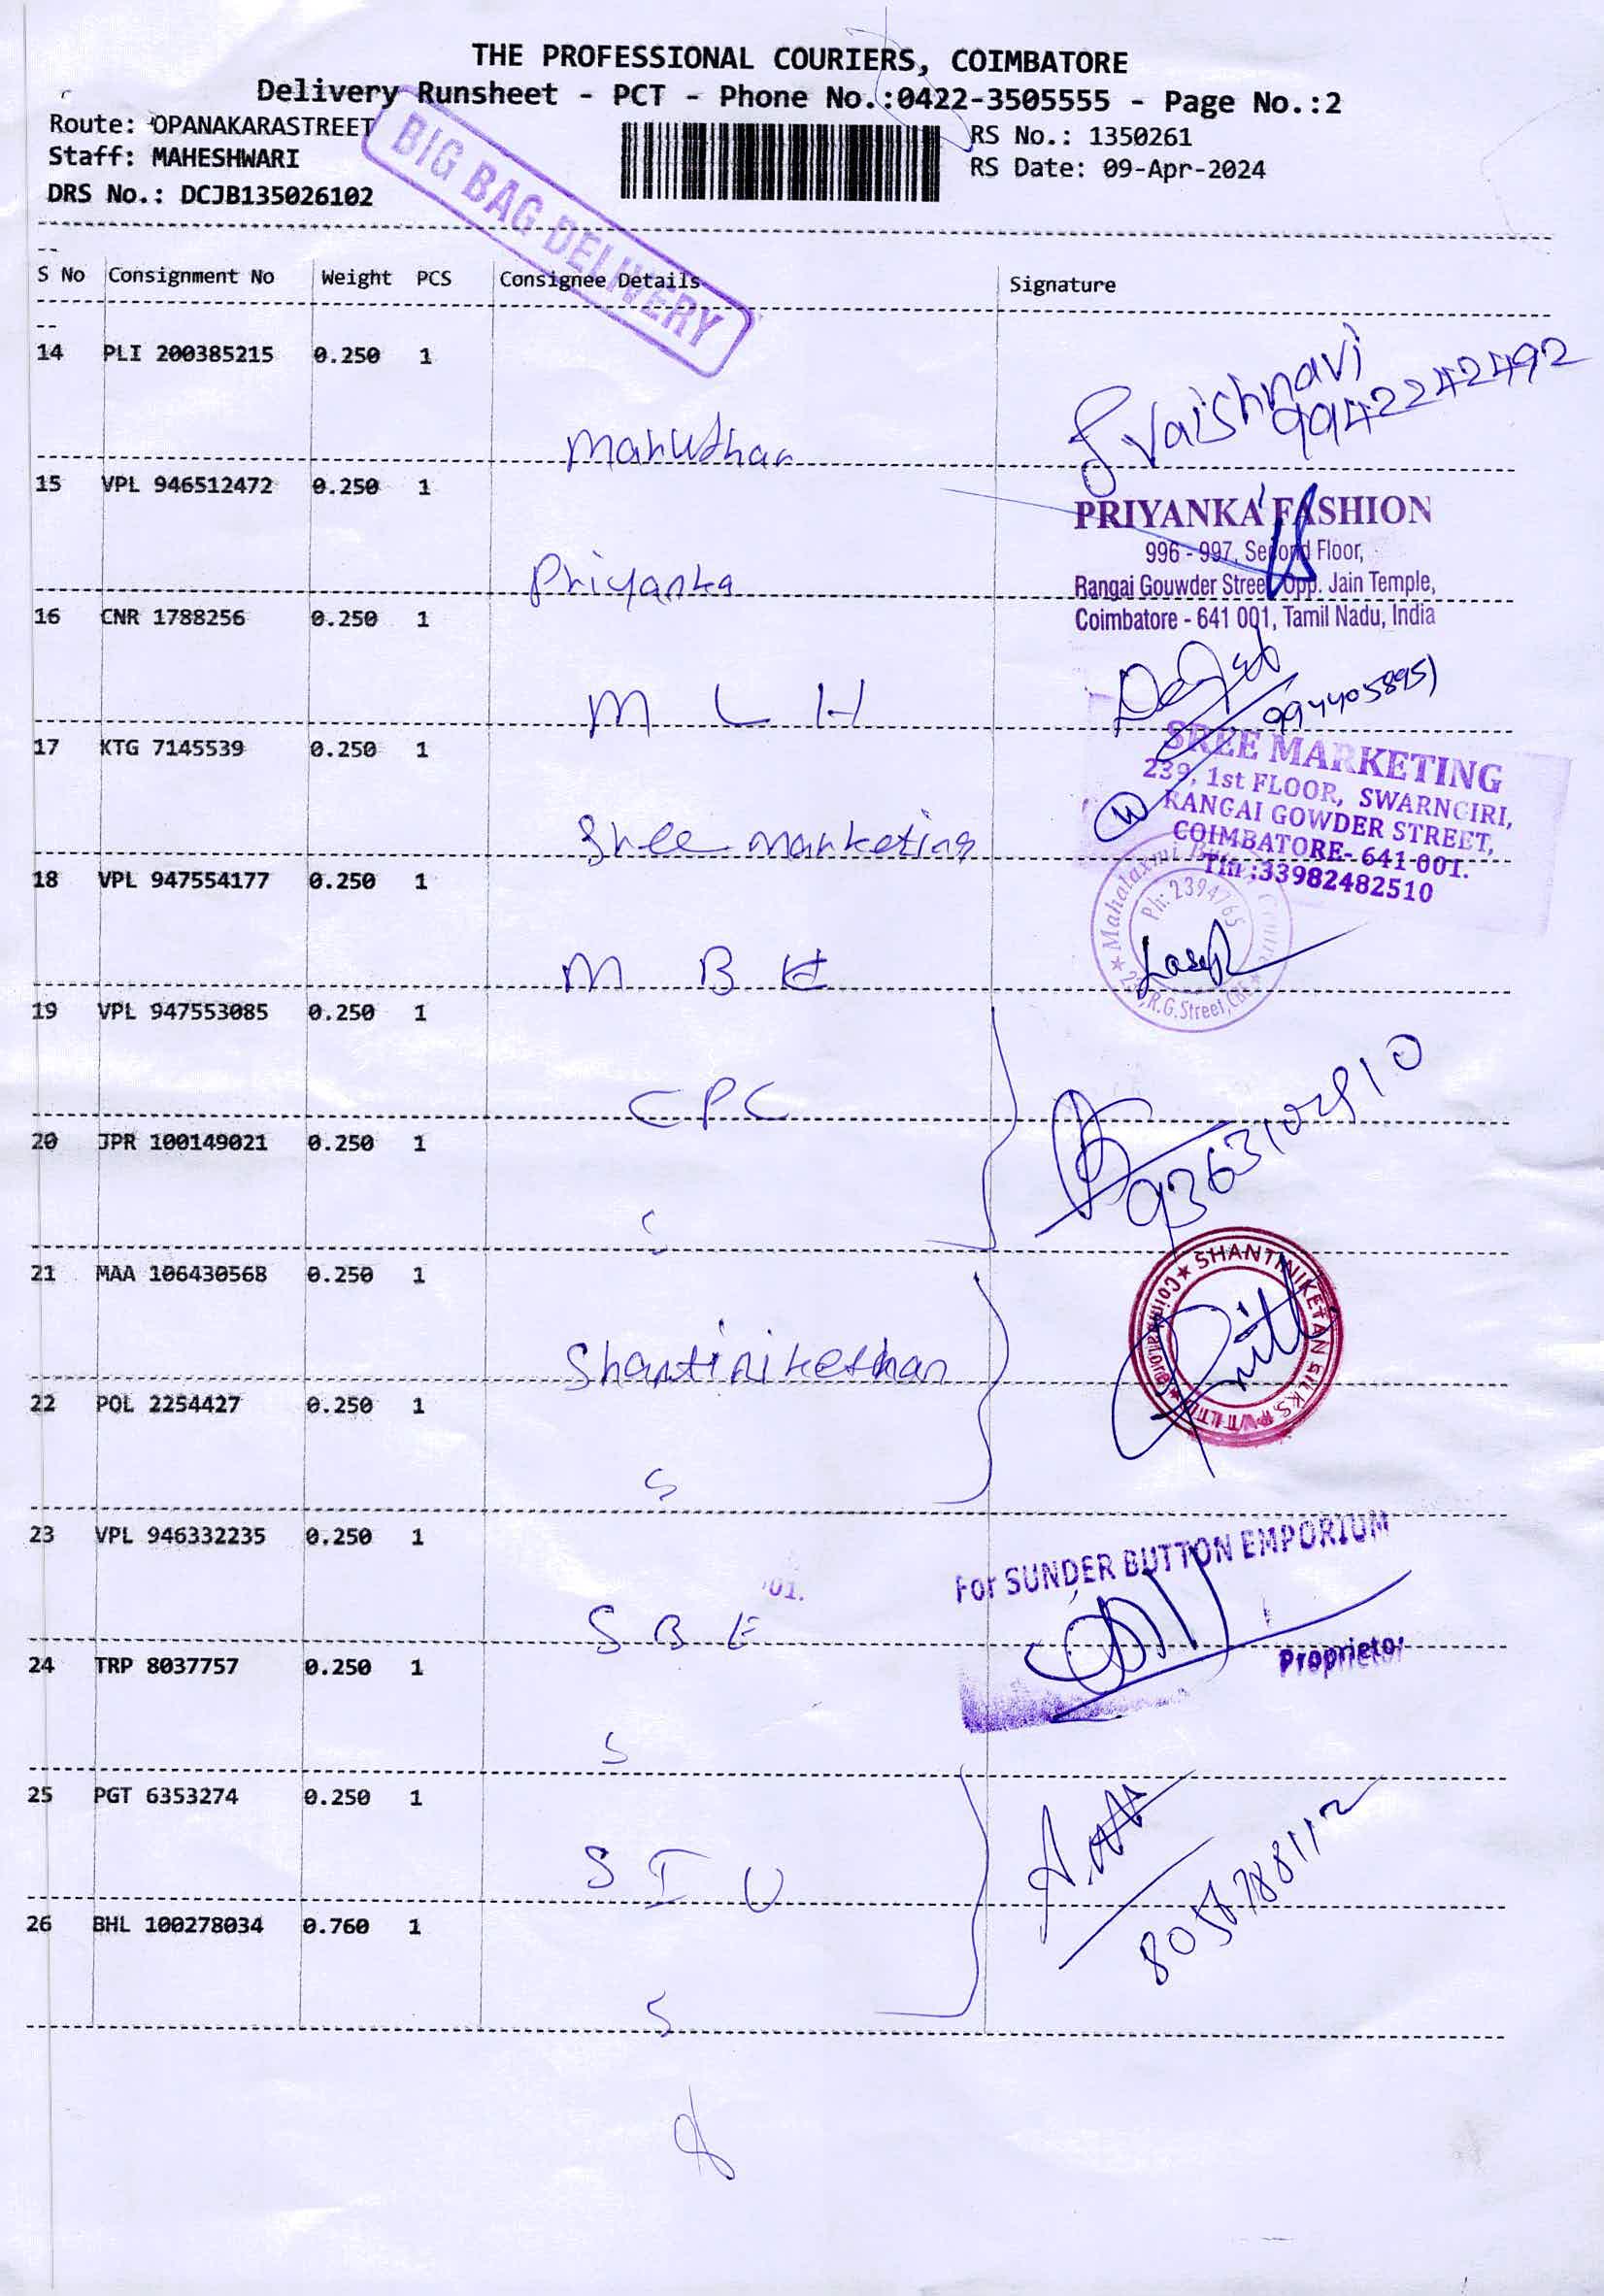 THE PROFESSIONAL COURIERS, COIMBATORE
Delivery Runsheet - PCT - Phone No.:0422-3505555 - Page No.:2
Route: OPANAKARASTREET
RS No.: 1350261
Staff: MAHESHWARI
RS Date: 09-Apr-2024
DRS No.: DCJB135026102
BIG BAG DELIVERY
S No Consignment No Weight PCS Consignee Details Signature
14 PLI 200385215 0.250 1
Vaishnavi
9942242492
15 VPL 946512472 0.250 1
Priyanka
PRIYANKA FASHION
996 - 997, Second Floor,
Rangai Gouwder Street, Opp. Jain Temple,
Coimbatore - 641 001, Tamil Nadu, India
16 CNR 1788256 0.250 1
M L H
17 KTG 7145539 0.250 1
Shree marketing
SREE MARKETING
239, 1st FLOOR, SWARNGIRI,
RANGAI GOWDER STREET,
COIMBATORE- 641 001.
Tin :33982482510
18 VPL 947554177 0.250 1
M B
Mahalaxmi
Ph: 2394765
R.G.Street, CBE
19 VPL 947553085 0.250 1
CPC
20 JPR 100149021 0.250 1
21 MAA 106430568 0.250 1
Shantinikethan
SHANTINIKETAN SILKS PVT LTD
Coimbatore
22 POL 2254427 0.250 1
S
23 VPL 946332235 0.250 1
01.
S B E
For SUNDER BUTTON EMPORIUM
Proprietor
24 TRP 8037757 0.250 1
S
25 PGT 6353274 0.250 1
S I U
26 BHL 100278034 0.760 1
S